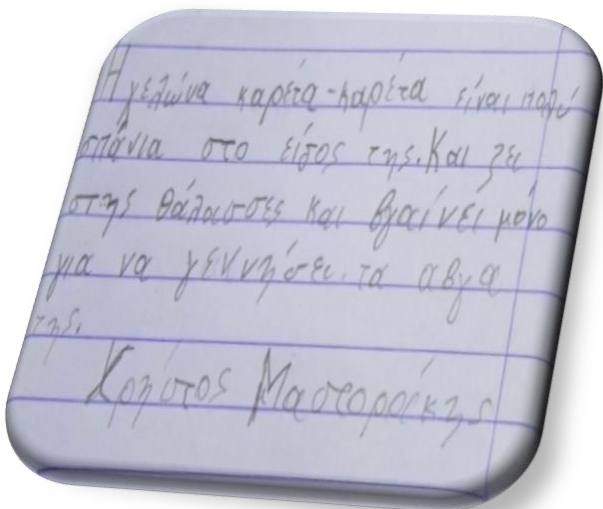 Η χελώνα καρέτα-καρέτα είναι πολύ
σπάνια στο είδος της. Και ζει
στης θάλασσες και βγαίνει μόνο
για να γεννήσει τα αβγα
της.
Χρήστος Μαστοράκης